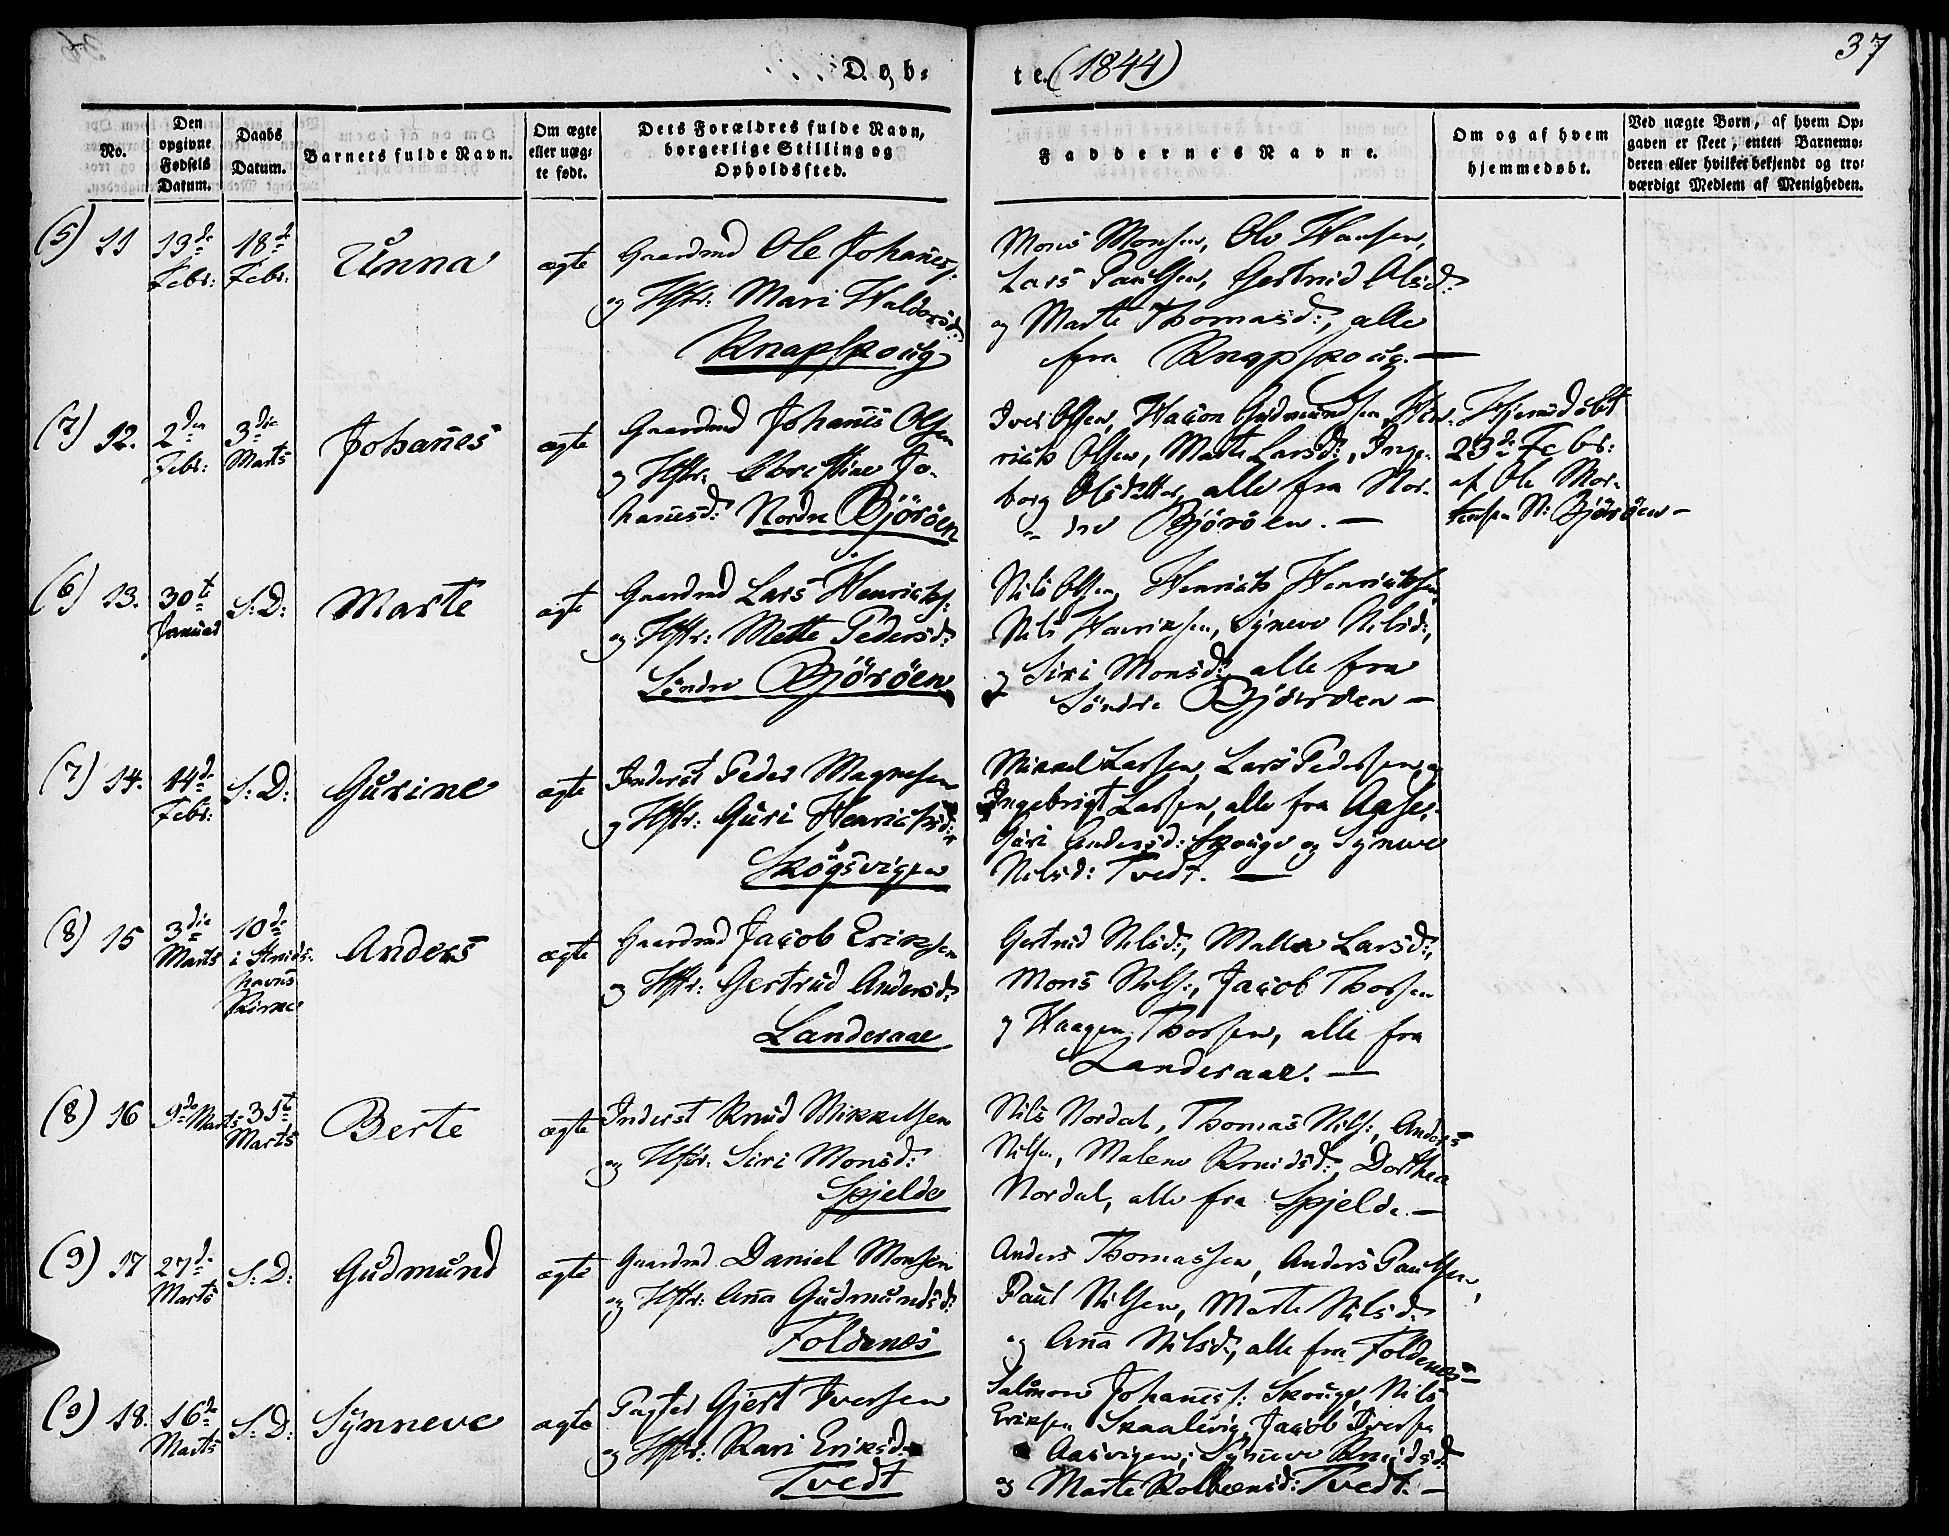 37
D ø b-
t e. (1844)
No.
Den opgivne Fødsels Datum.
Daabs Datum.
Barnets fulde Navn.
Om ægte eller uæg-te født.
Dets Forældres fulde Navn, borgerlige Stilling og Opholdssted.
Faddernes Navne.
Om og af hvem hjemmedøbt.
Ved uægte Børn, af hvem Op-
gaven er skeet, enten Barnemo-
deren eller hvilket bekjendt og tro-
værdigt Medlem af Menigheden.
(5) 11 13de Febr: 18de Febr: Unna ægte
Gaardmd Ole Johanes:
og Hstr: Mari Haldorsd:
Knapskoug
Mons Monsen, Ole Hansen,
Lars Paulsen, Gertrud Olsd:
og Marte Thomasd:, alle
fra Knapskoug. —
(7) 12. 2den Febr: 3die Marts Johanes ægte
Gaardmd Johanes Olsen
og Hstr: Christine Jo-
hanesd: Nordre Björöen
Iver Olsen, Hacon Gudmundsen, Hen-
rich Olsen, Marte Larsd:, Inge-
borg Olsdatter, alle fra Nor-
dre Björöen. —
Hjemdöbt
23de Febr:
af Ole Mor-
tensen N: Björöen —
(6) 13. 30te Januar S:D: Marte ægte
Gaardmd Lars Henrichs:
og Hstr: Mette Pedersd:
Söndre Björöen
Nils Olsen, Henrich Henrichsen,
Nils Henriksen, Synneve Nilsd:,
og Siri Monsd: alle fra
Söndre Björöen —
(7) 14. 14de Febr: S:D: Gurine ægte
Inderst Peder Magnesen
og Hstr: Guri Henrichsd:
Skogsvigen
Mikkel Larsen, Lars Pedersen,
Ingebrigt Larsen, alle fra Aase,
Guri Andersd: Skouge og Synneve
Nilsd: Tvedt. —
(8) 15 3die Marts 10de i Strids-
havns
Kirke Anders ægte
Gaardmd Jacob Eriksen
og Hstr: Gertrud Andersd:
Landeraae
Gertrud Nilsd:, Malla Larsd:,
Mons Nils:, Jacob Thorsen
og Haagen Thorsen, alle fra
Landeraae. —
(8) 16 9de Marts 31te Marts Berte ægte
Inderst Knud Mikkelsen
og Hstr: Siri Monsd:
Spjelde
Nils Nordal, Thomas Nils:, Anders
Nilsen, Malene Knudsd:, Dorthea
Nordal, alle fra Spjelde. —
(9) 17 27de Marts S:D: Gudmund ægte
Gaardmd Daniel Monsen
og Hstr: Ana Gudmundsd:
Foldenes
Anders Thomassen, Anders Paulsen,
Paul Nilsen, Marte Nilsd:
og Ana Nilsd:, alle fra Foldenes —
(9) 18. 16de Marts S:D: Synneve ægte
Pagter Gjert Iversen
og Hstr: Kari Eriksd:
Tvedt
Salmon Johanes: Skouge, Nils
Eriksen Skaalevig, Jacob Iversen
Aasvigen, Syneve Knudsd:
og Marte Kolbensd: Tvedt. —